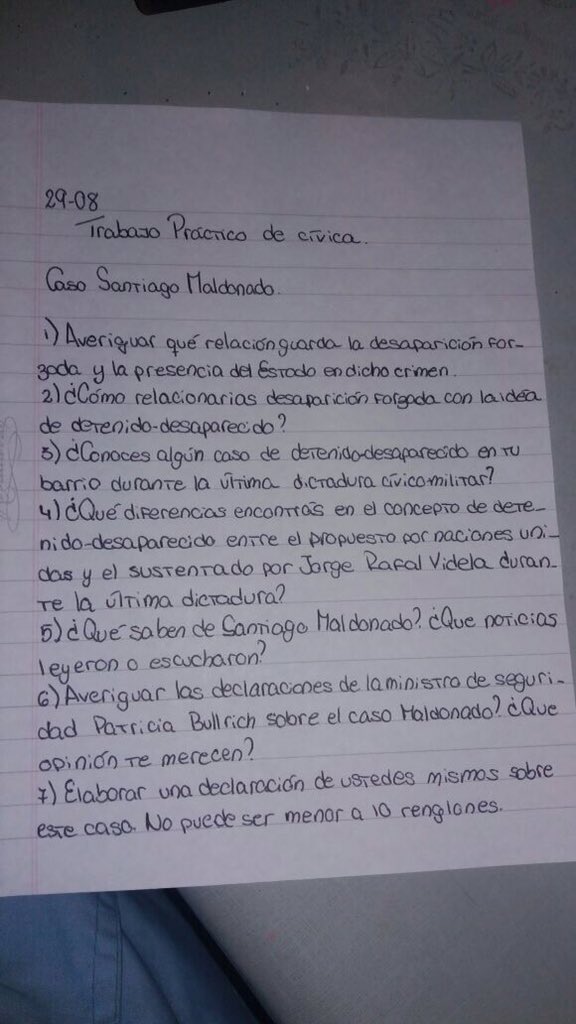 29-08
Trabajo Práctico de cívica.
Caso Santiago Maldonado.
1) Averiguar qué relación guarda la desaparición for-
zada y la presencia del Estado en dicho crimen.
2) ¿Cómo relacionarias desaparición forzada con la idea
de detenido-desaparecido?
3) ¿Conoces algún caso de detenido-desaparecido en tu
barrio durante la última dictadura cívico militar?
4) ¿Qué diferencias encontrás en el concepto de dete-
nido-desaparecido entre el propuesto por naciones uni-
das y el sustentado por Jorge Rafal Videla duran-
te la última dictadura?
5) ¿Qué saben de Santiago Maldonado? ¿Que noticias
leyeron o escucharon?
6) Averiguar las declaraciones de la ministro de seguri-
dad Patricia Bullrich sobre el caso Maldonado? ¿Que
opinión te merecen?
7) Elaborar una declaración de ustedes mismos sobre
este caso. No puede ser menor a 10 renglones.